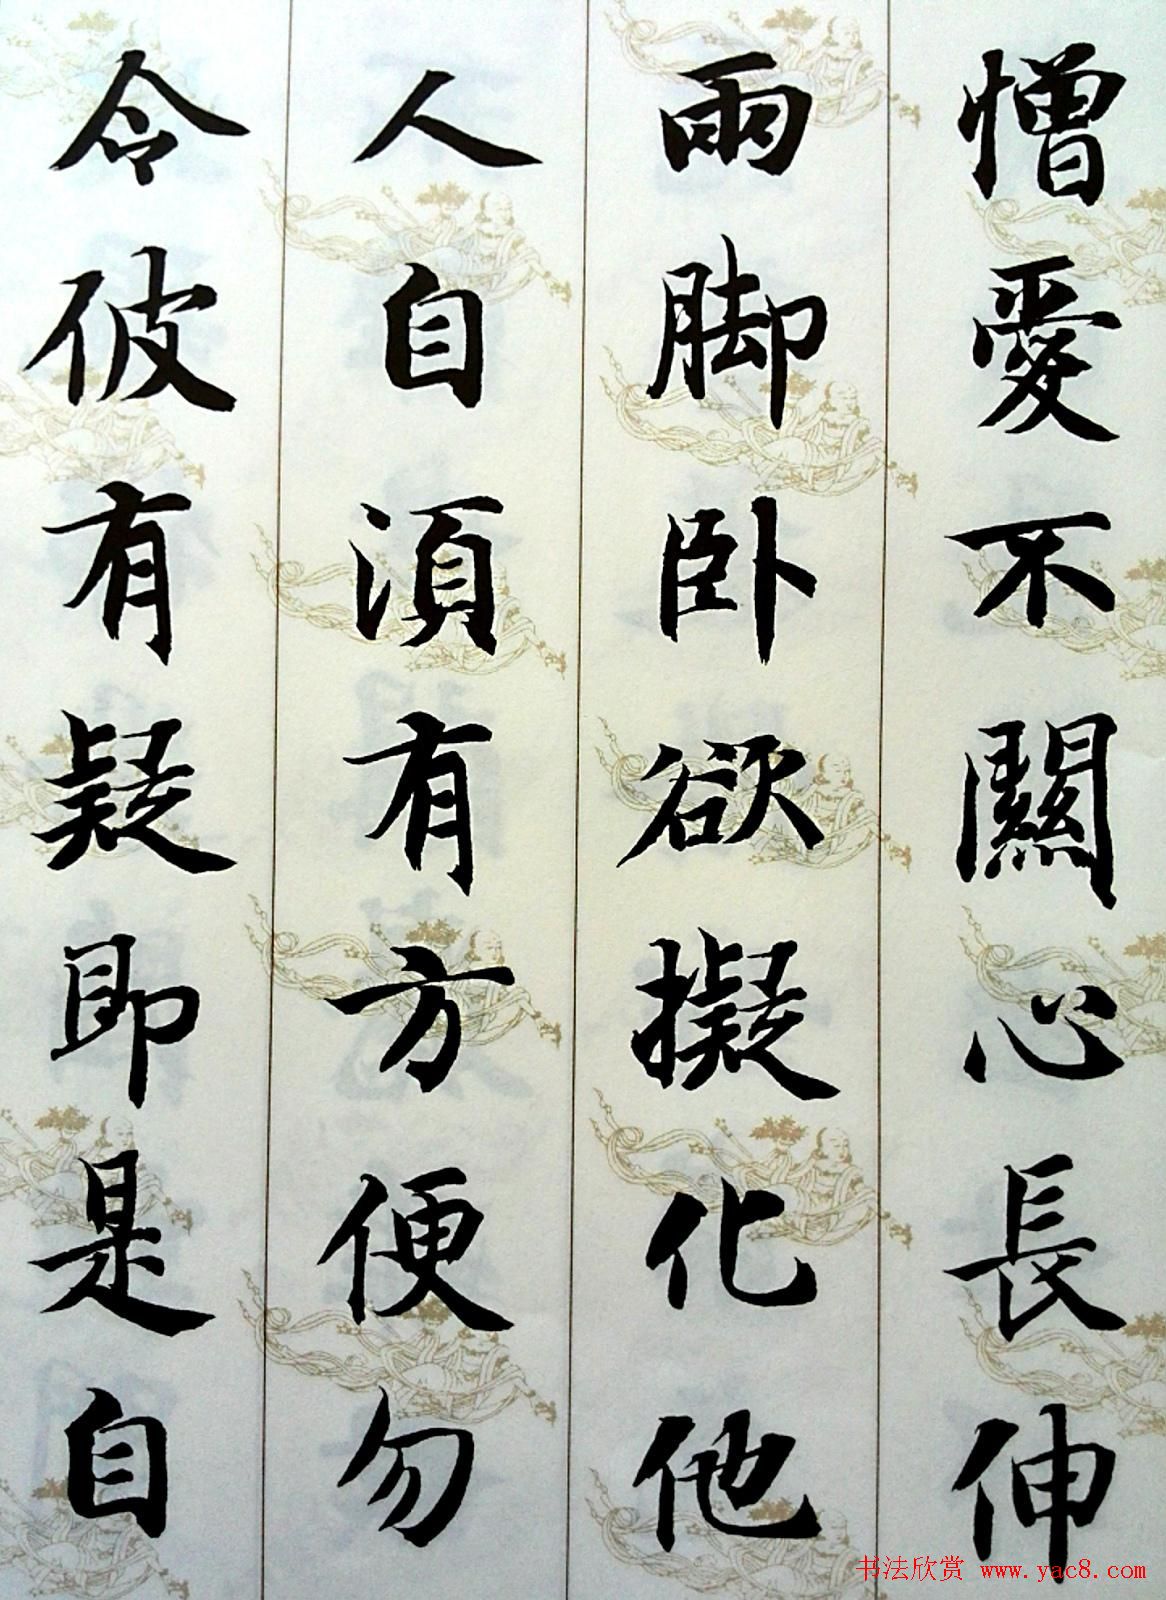 憎愛不關心長伸
兩脚卧欲擬化他
人自湏有方便勿
令彼有疑即是自
书法欣赏 www.yac8.com